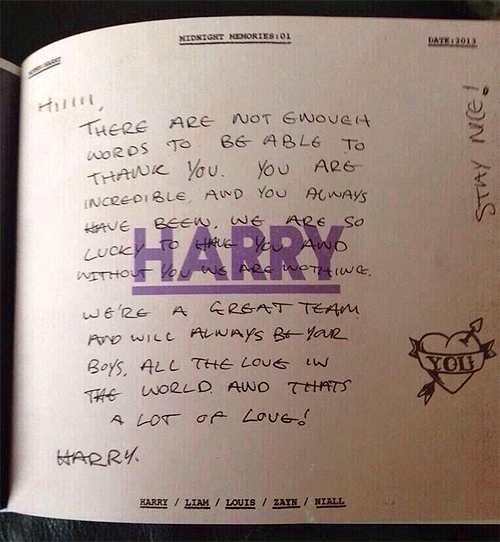 MIDNIGHT MEMORIES:01
DATE:2013
HIIIII,
STAY NICE!
THERE ARE NOT ENOUGH
WORDS TO BE ABLE TO
THANK YOU. YOU ARE
INCREDIBLE, AND YOU ALWAYS
HAVE BEEN. WE ARE SO
LUCKY TO HAVE YOU AND
WITHOUT YOU WE ARE NOTHING.
HARRY
WE'RE A GREAT TEAM
AND WILL ALWAYS BE YOUR
BOYS, ALL THE LOVE IN
THE WORLD. AND THATS
A LOT OF LOVE!
YOU
HARRY.
HARRY / LIAM / LOUIS / ZAYN / NIALL